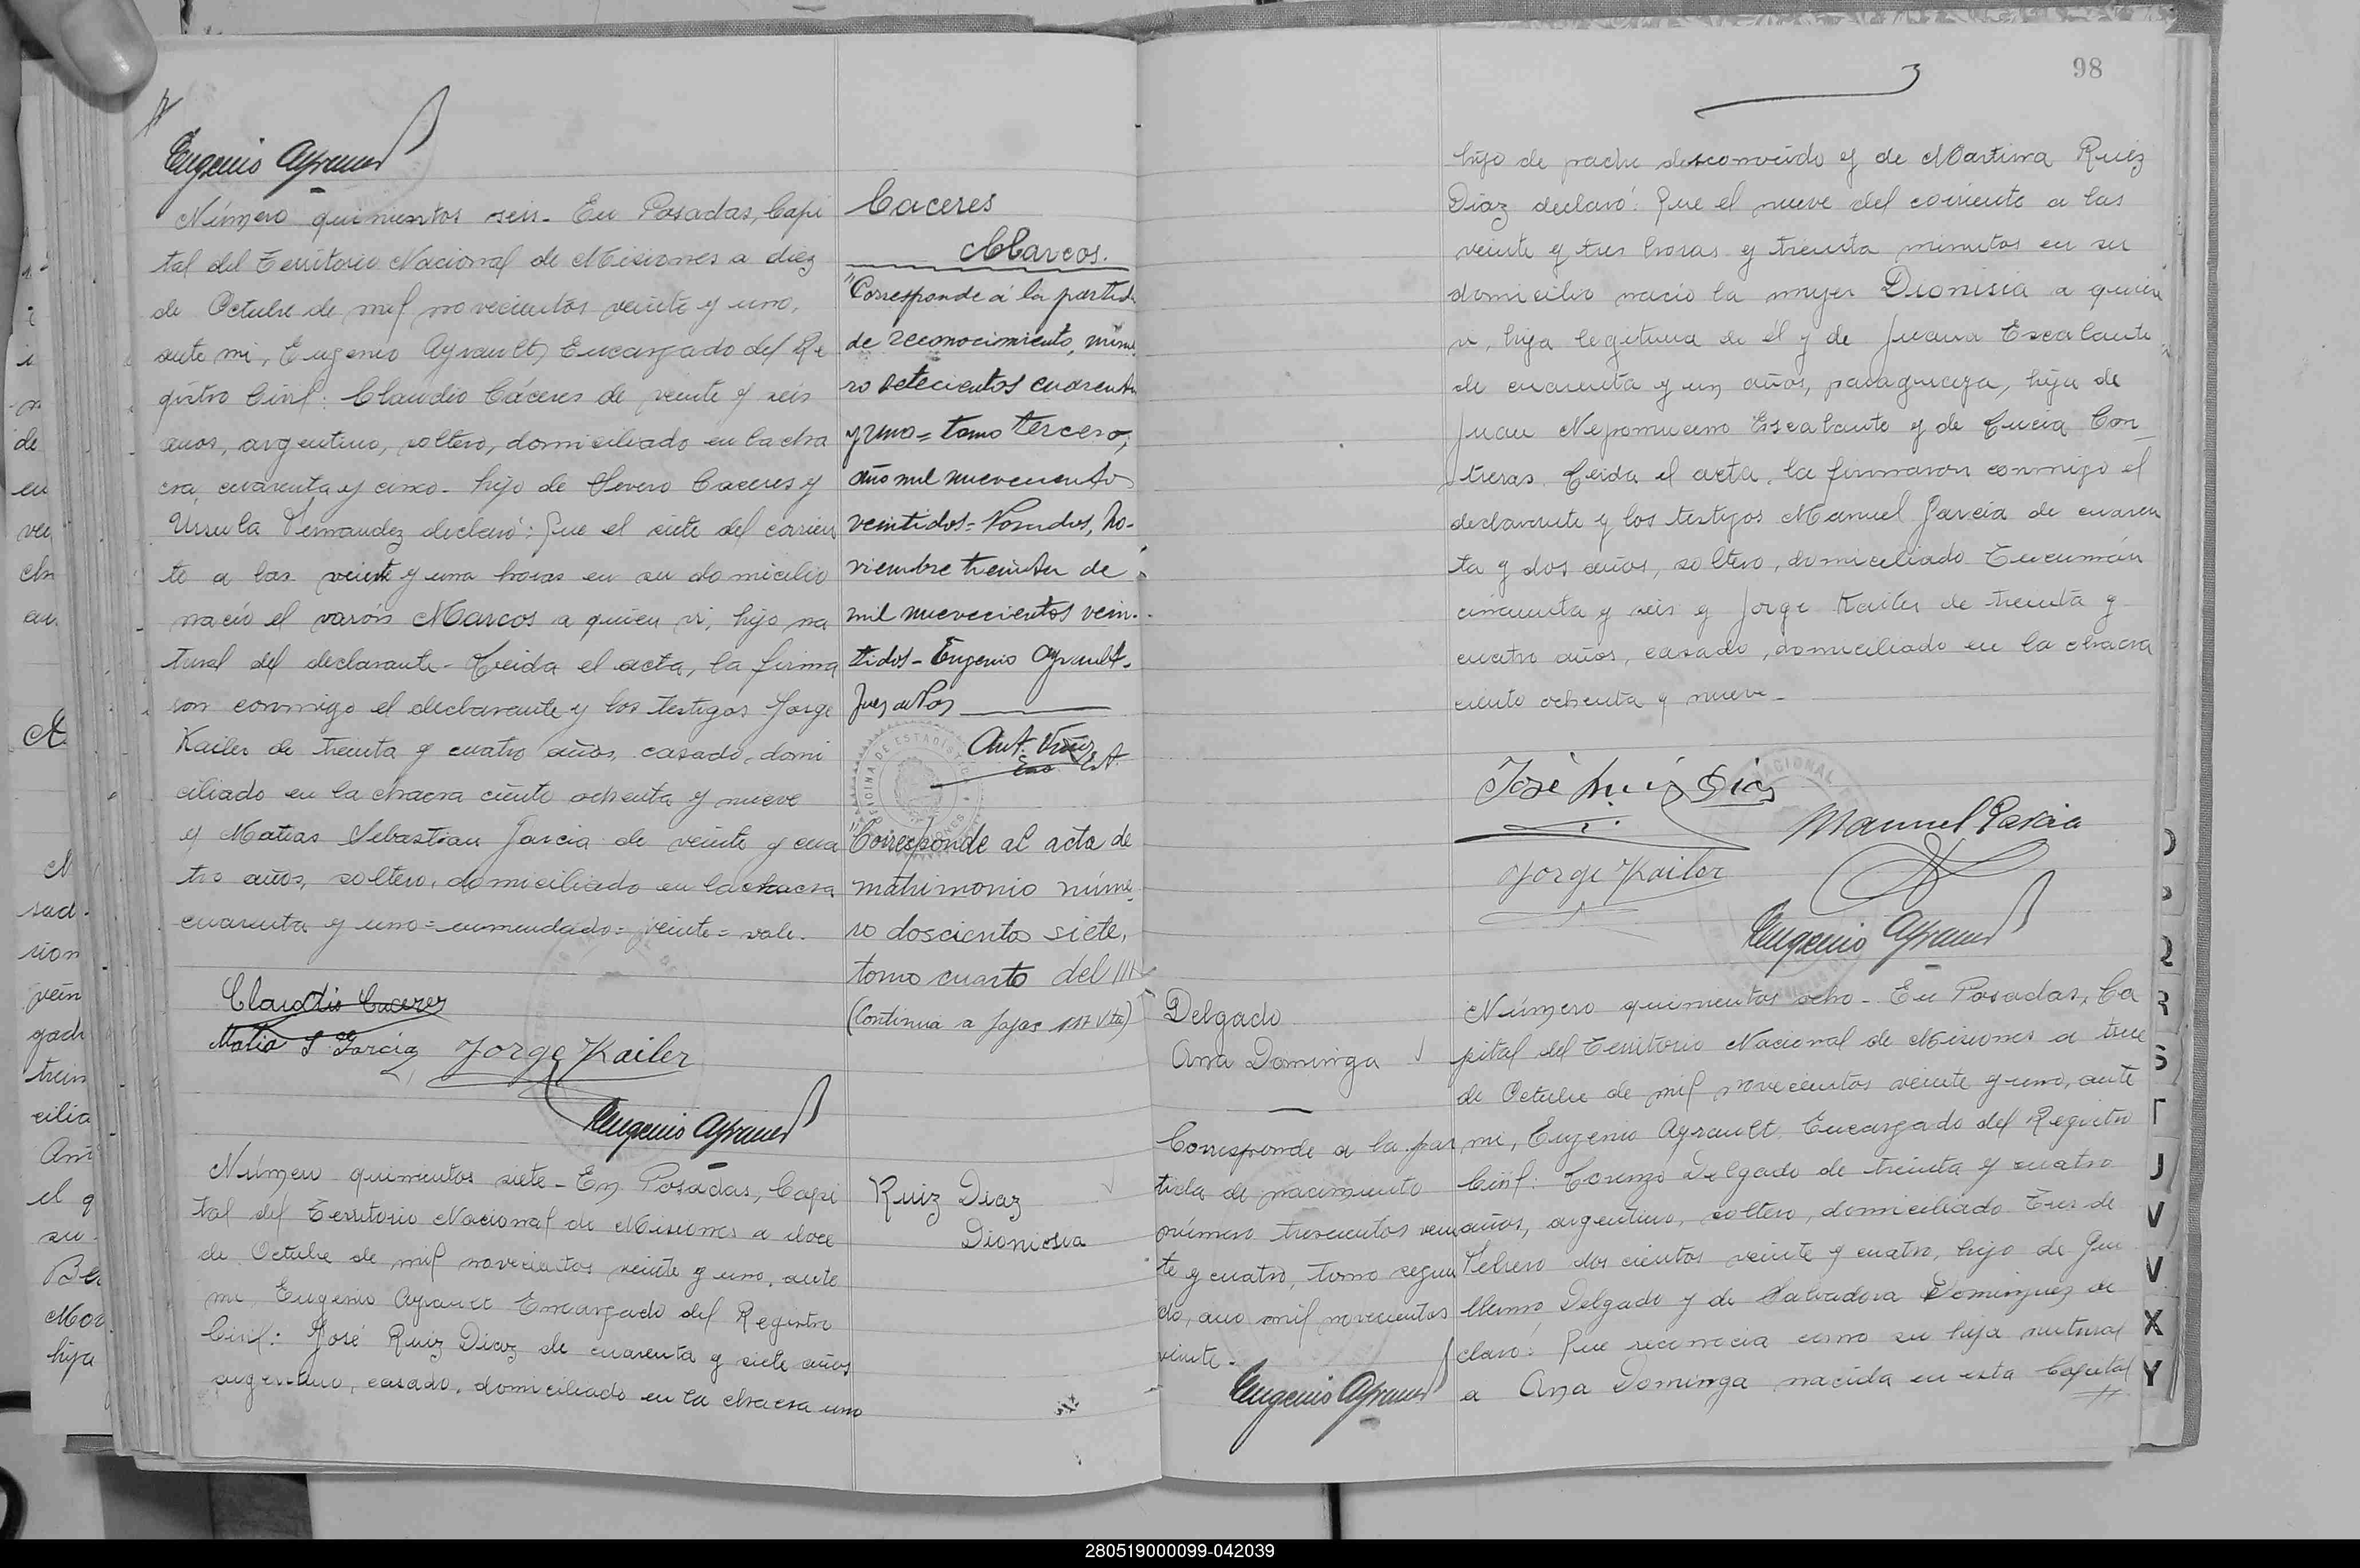 Eugenio Ayrault
Número quinientos seis - En Posadas, Capi
tal del Territorio Nacional de Misiones a diez
de Octubre de mil novecientos veinte y uno,
ante mi, Eugenio Ayrault, Encargado del Re
gistro Civil: Claudio Cáceres de veinte y seis
años, argentino, soltero, domiciliado en la cha
cra cuarenta y cinco - hijo de Severo Caceres y
Ursula Fernandez declaró: Que el siete del corrien
te a las veinte y una horas en su domicilio
nació el varón Marcos a quien vi, hijo na
tural del declarante - Leida el acta, la firma
ron conmigo el declarante y los testigos Jorge
Kailer de treinta y cuatro años, casado, domi
ciliado en la chacra ciento ochenta y nueve
y Matias Sebastian Garcia de veinte y cua
tro años, soltero, domiciliado en la chacra
cuarenta y uno = enmendado = veinte = vale.
Claudio Caceres
Matia S Garcia
Jorge Kailer
Eugenio Ayrault
Caceres
Marcos.
"Corresponde á la partida
de reconocimiento, núme
ro setecientos cuarenta
y uno = tomo tercero,
año mil nuevecientos
veintidos = Posadas, No-
viembre treinta de
mil nuevecientos vein-
tidos - Eugenio Ayrault -
Juez de Paz
OFICINA DE ESTADISTICA
"Corresponde al acta de
matrimonio núme
ro doscientos siete,
tomo cuarto del
(Continua a fojas 117 vta)
Número quinientos siete - En Posadas, Capi
tal del Territorio Nacional de Misiones a doce
de Octubre de mil novecientos veinte y uno, ante
mi, Eugenio Ayrault Encargado del Registro
Civil: José Ruiz Diaz de cuarenta y siete años
argentino, casado, domiciliado en la chacra uno
Ruiz Diaz
Dionicia
98
hijo de padre desconocido y de Martina Ruiz
Diaz declaró: Que el nueve del corriente a las
veinte y tres horas y treinta minutos en su
domicilio nació la mujer Dionisia a quien
vi, hija legitima de él y de Juana Escalante
de cuarenta y un años, paraguaya, hija de
Juan Nepomuceno Escalante y de Lucia Con
treras. Leida el acta, la firmaron conmigo el
declarante y los testigos Manuel Garcia de cuaren
ta y dos años, soltero, domiciliado Tucumán
cincuenta y seis y Jorge Kailer de treinta y
cuatro años, casado, domiciliado en la chacra
ciento ochenta y nueve -
José Ruiz Diaz
Manuel Garcia
Jorge Kailer
Eugenio Ayrault
Delgado
Ana Dominga
Corresponde a la par
tida de nacimiento
número trescientos vein
te y cuatro, tomo segun
do, año mil novecientos
veinte -
Eugenio Ayrault
Número quinientos ocho - En Posadas, Ca
pital del Territorio Nacional de Misiones a trece
de Octubre de mil novecientos veinte y uno, ante
mi, Eugenio Ayrault, Encargado del Registro
Civil: Lorenzo Delgado de treinta y cuatro
años, argentino, soltero, domiciliado Tres de
Febrero doscientos veinte y cuatro, hijo de Gui
llermo Delgado y de Salvadora Dominguez de
claró: Que reconocia como su hija natural
a Ana Dominga nacida en esta Capital
280519000099-042039